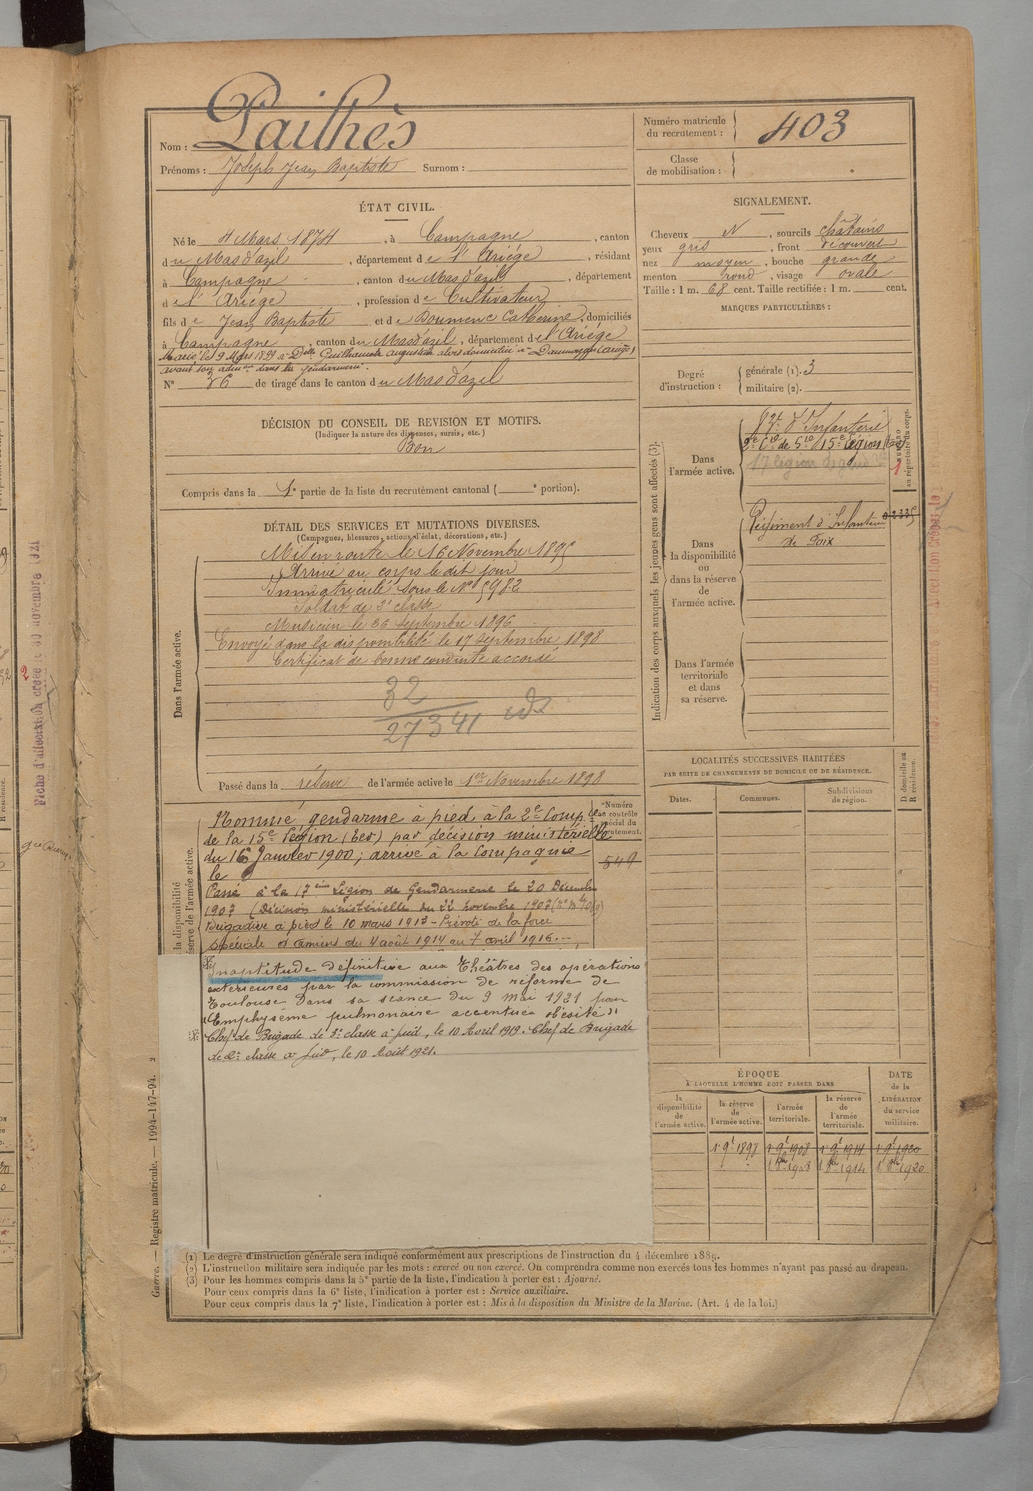 Nom : Pailhès
Prénoms : Joseph Jean Baptiste Surnom :
Numéro matricule du recrutement : 403
Classe de mobilisation :
ÉTAT CIVIL.
Né le 4 Mars 1874, à Campagne, canton
du Mas d'azil, département de l'Ariége, résidant
à Campagne, canton du Mas d'azil, département
de l'Ariége, profession de Cultivateur
fils de Jean Baptiste et de Doumenc Catherine, domiciliés
à Campagne, canton du Mas d'azil, département de l'Ariége
Marié le 9 Mars 1899 à Delle Guilhamede augustine alors domiciliée à Daumazan (ariège)
avant son admon dans la gendarmerie.
N° 26 de tirage dans le canton du Mas d'azil
SIGNALEMENT.
Cheveux N, sourcils châtains
yeux gris, front découvert
nez moyen, bouche grande
menton rond, visage ovale
Taille : 1 m. 68 cent. Taille rectifiée : 1 m. cent.
MARQUES PARTICULIÈRES :
Degré d'instruction : générale (1). 3
militaire (2).
DÉCISION DU CONSEIL DE REVISION ET MOTIFS.
(Indiquer la nature des dispenses, sursis, etc.)
Bon
Compris dans la 1e partie de la liste du recrutement cantonal ( e portion).
DÉTAIL DES SERVICES ET MUTATIONS DIVERSES.
(Campagnes, blessures, actions d'éclat, décorations, etc.)
Dans l'armée active.
Mis en route le 16 Novembre 1895
Arrivé au corps le dit jour
Immatriculé sous le N° 5982
Soldat de 2e classe
Musicien le 26 septembre 1896
Envoyé dans la disponibilité le 17 septembre 1898
Certificat de bonne conduite accordé
32
27341
Passé dans la réserve de l'armée active le 1er Novembre 1898
la disponibilité
réserve de l'armée active.
Nommé gendarme à pied, à la 2e Comp.ie
de la 15e Légion (Ter) par décision ministérielle
du 16 Janvier 1900 ; arrivé à la Compagnie
le
Passé à la 17ème Légion de Gendarmerie le 20 Décembre
1907 (Décision ministérielle du 22 novembre 1907
Brigadier à pied le 10 mars 1913 - Prévôté de la force
spéciale d'armens du 4 août 1914 au 7 avril 1916.
Inaptitude définitive aux Théâtres des opérations
extérieures par la commission de réforme de
Toulouse dans sa séance du 9 mai 1921 pour
"Emphysème pulmonaire accentué obésité"
Chef de Brigade de 3e classe à pied, le 10 Avril 1919. Chef de Brigade
de 2e classe à pied, le 10 Août 1921.
Numéro au contrôle spécial du recrutement.
549
Indication des corps auxquels les jeunes gens sont affectés (3).
Dans l'armée active.
d'Infanterie
2e Cie de 5 15e Légion
17 légion de gend
NUMÉRO au répertoire du corps.
1
Dans la disponibilité ou dans la réserve de l'armée active.
Régiment d'Infanterie
de Foix
Dans l'armée territoriale et dans sa réserve.
LOCALITÉS SUCCESSIVES HABITÉES
PAR SUITE DE CHANGEMENTS DE DOMICILE OU DE RÉSIDENCE.
Dates. Communes. Subdivisions de région. D domicile ou R résidence.
ÉPOQUE
À LAQUELLE L'HOMME DOIT PASSER DANS
DATE de la LIBÉRATION du service militaire.
la disponibilité de l'armée active. la réserve de l'armée active. l'armée territoriale. la réserve de l'armée territoriale.
1 9e 1898 1 9e 1908 1 9e 1914 1 9e 1920
1 8bre 1908 1 8bre 1914 1 8bre 1920
(1) Le degré d'instruction générale sera indiqué conformément aux prescriptions de l'instruction du 4 décembre 1889.
(2) L'instruction militaire sera indiquée par les mots : exercé ou non exercé. On comprendra comme non exercés tous les hommes n'ayant pas passé au drapeau.
(3) Pour les hommes compris dans la 5e partie de la liste, l'indication à porter est : Ajourné.
Pour ceux compris dans la 6e liste, l'indication à porter est : Service auxiliaire.
Pour ceux compris dans la 7e liste, l'indication à porter est : Mis à la disposition du Ministre de la Marine. (Art. 4 de la loi.)
Guerre. — Registre matricule. — 1994-147-94. 2
Fiche d'affectation créée le 30 novembre 1921